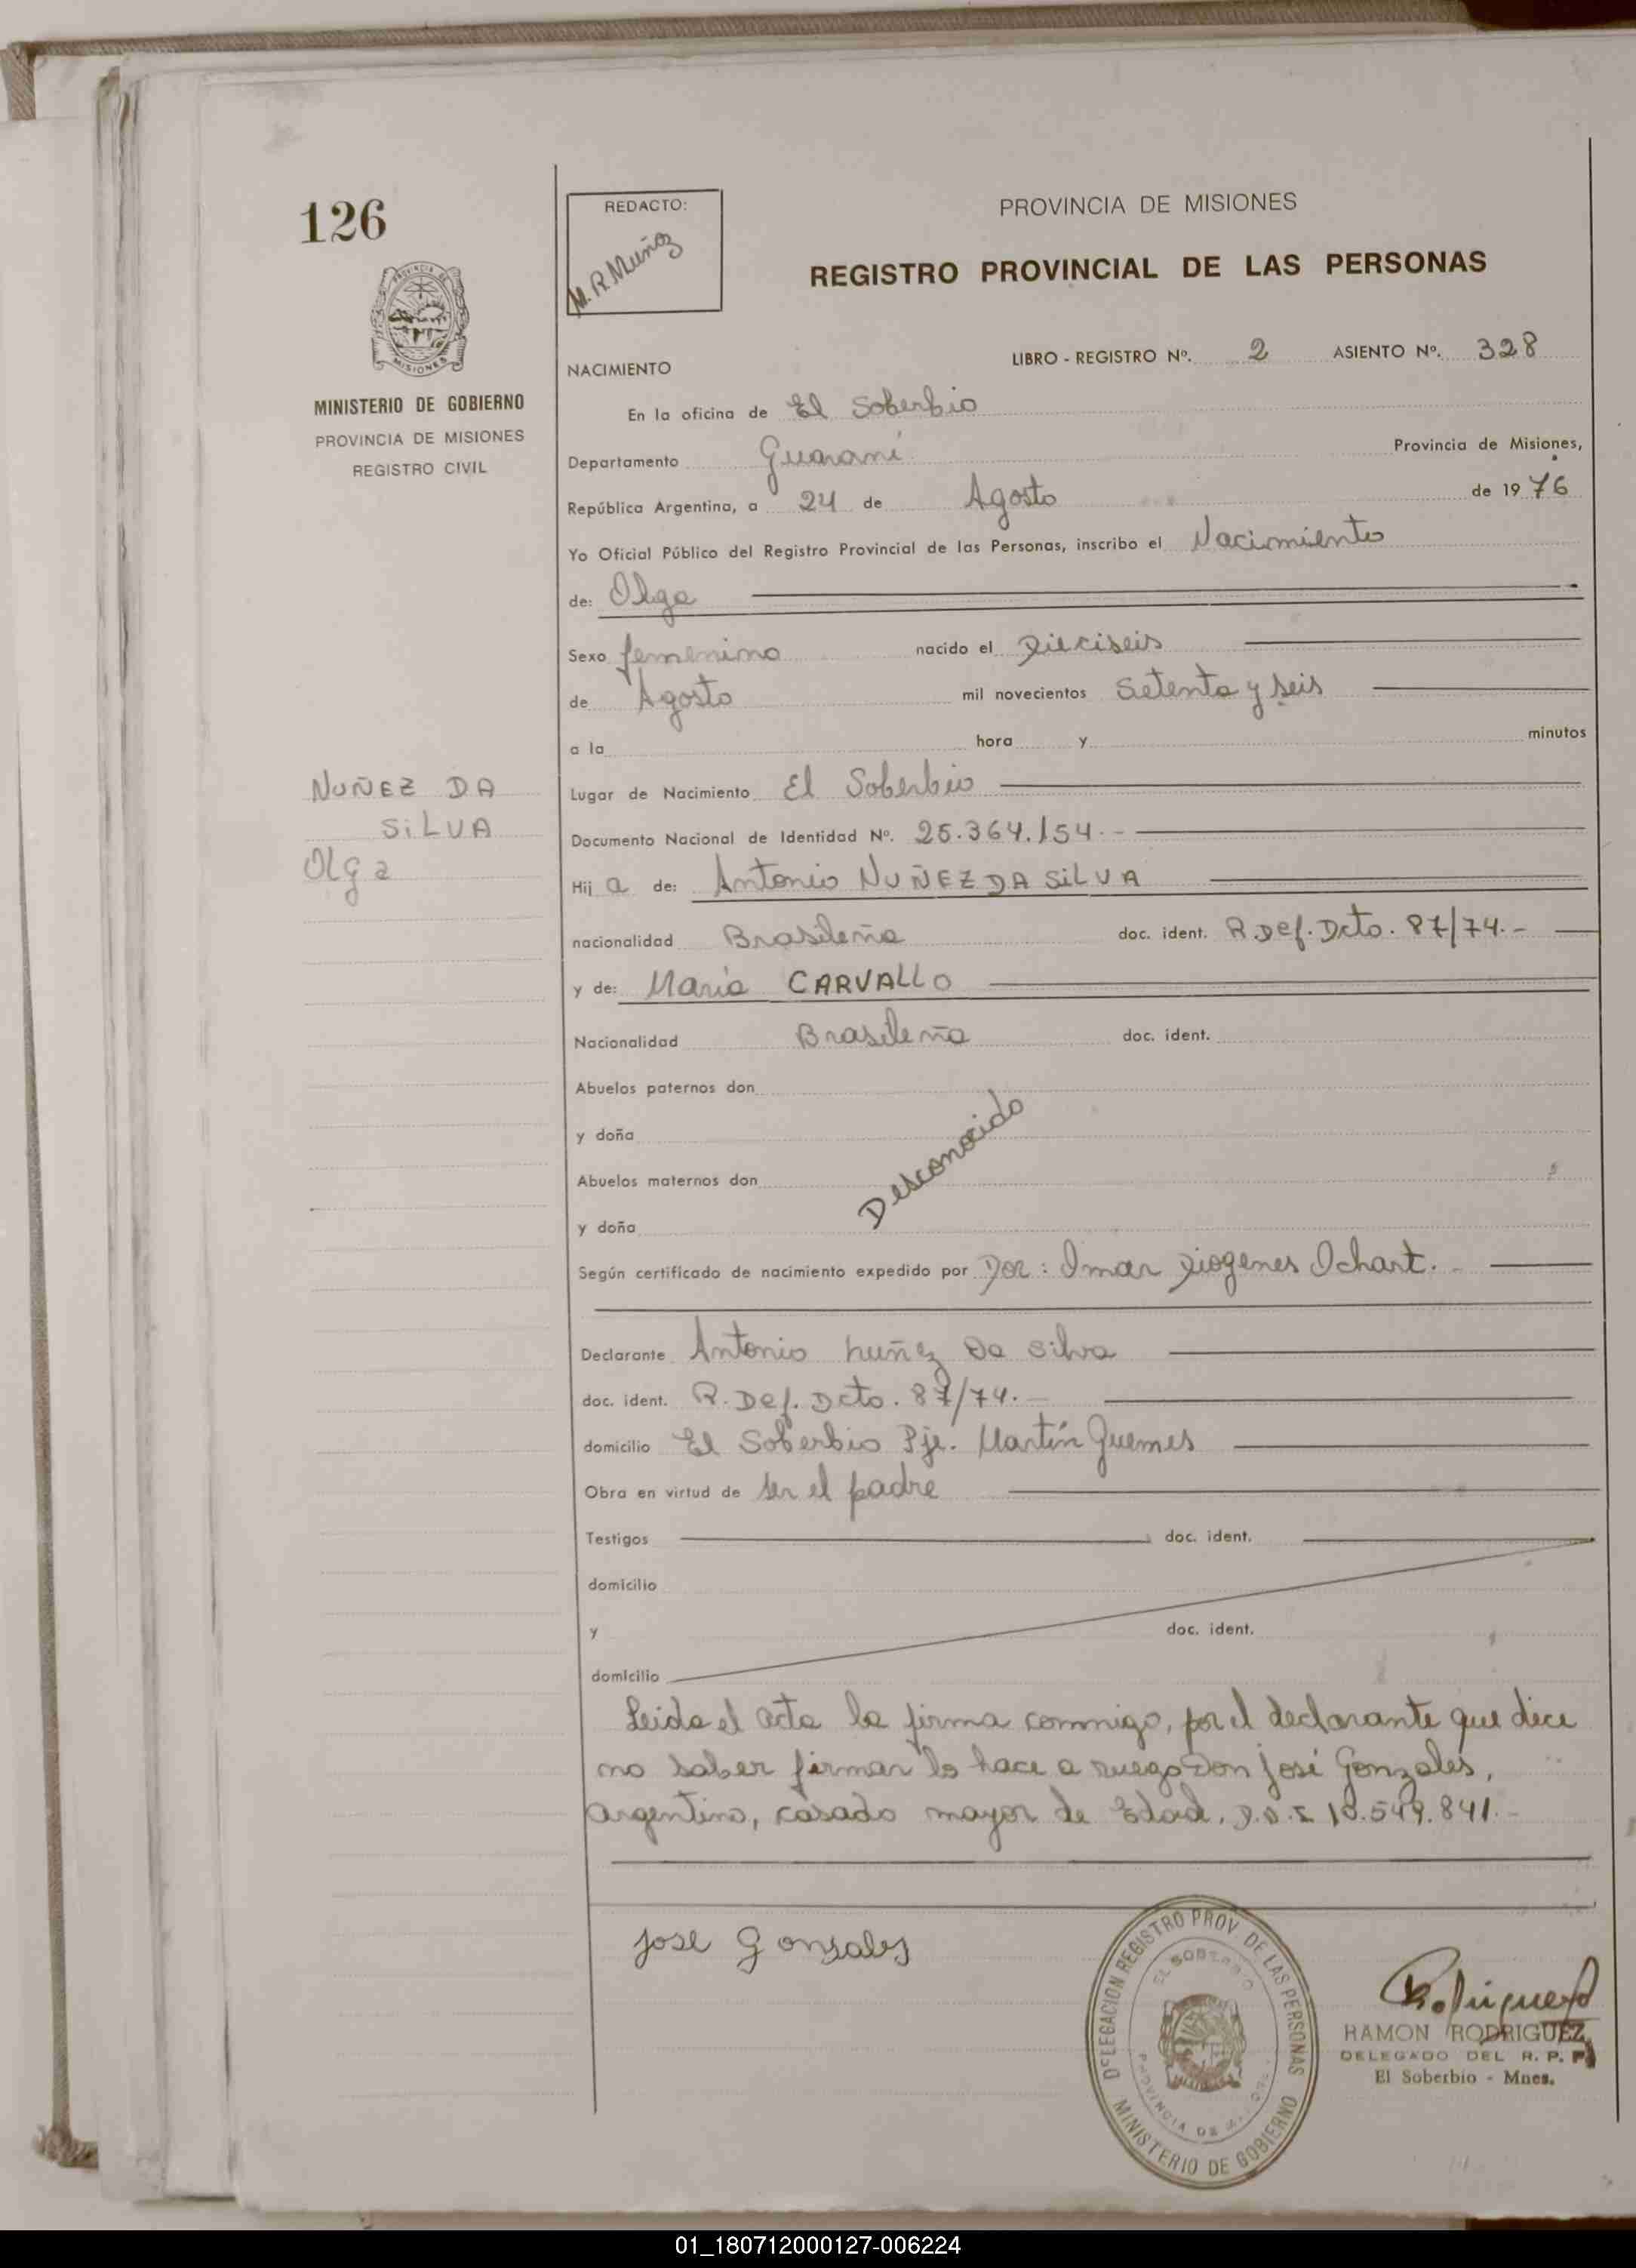 126
REDACTO:
M. R. Muñoz
PROVINCIA DE MISIONES
REGISTRO PROVINCIAL DE LAS PERSONAS
MINISTERIO DE GOBIERNO
PROVINCIA DE MISIONES
REGISTRO CIVIL
NACIMIENTO LIBRO - REGISTRO Nº. 2 ASIENTO Nº. 328
En la oficina de El Soberbio
Departamento Guaraní Provincia de Misiones,
República Argentina, a 24 de Agosto de 1976
Yo Oficial Público del Registro Provincial de las Personas, inscribo el Nacimiento
de: Olga
Sexo femenino nacido el Dieciseis
de Agosto mil novecientos Setenta y seis
a la hora y minutos
NUÑEZ DA
SILVA
Olga
Lugar de Nacimiento El Soberbio
Documento Nacional de Identidad Nº. 25.364.154.-
Hij a de: Antonio NUÑEZ DA SILVA
nacionalidad Brasileña doc. ident. R.Def. Dcto. 87/74.-
y de: María CARVALLO
Nacionalidad Brasileña doc. ident.
Abuelos paternos don
y doña
Desconocido
Abuelos maternos don
y doña
Según certificado de nacimiento expedido por Dor: Omar Diogenes Ochart.-
Declarante Antonio Nuñez Da Silva
doc. ident. R. Def. Dcto. 87/74.-
domicilio El Soberbio Pje. Martín Guemes
Obra en virtud de ser el padre
Testigos doc. ident.
domicilio
y doc. ident.
domicilio
Leida el acta la firma conmigo, por el declarante que dice
no saber firmar lo hace a ruego Don José Gonzales,
argentino, casado mayor de Edad. 10.549.841.-
Jose Gonzales
DELEGACION REGISTRO PROV. DE LAS PERSONAS
EL SOBERBIO
PROVINCIA DE
MINISTERIO DE GOBIERNO
RAMON RODRIGUEZ
DELEGADO DEL R. P. P.
El Soberbio - Mnes.
01_180712000127-006224